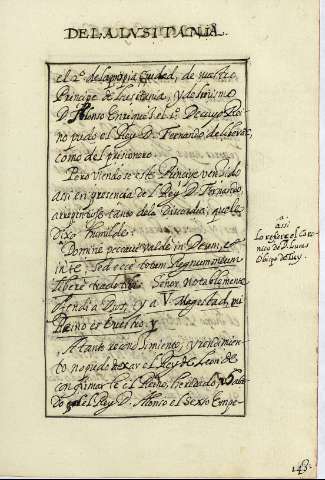 DE LA LVSITANIA.
el 2º. de la propia Ciudad, de nuestro
Principe de Lusitania, y dosinissimo
D. Alonso Enriquez el 1º. De cuyo Rei-
no pudo el Rey D. Fernando
como del prisionero.
Pero viendose este Principe vencido
assi en presencia del Rey D. Fernando,
arrepintiose tanto de la Discordia, que le
dixo humilde:
Domine peccavi valde in Deum, et
in te, sed ecce totum Regnum meum
libere trado tibi. Señor notablemente
ofendi a Dios, y a V. Magestad, mi
Reino es vuestro, y
A tanto rendimiento, y rendimien-
to no pudo dexar el Rey de Leon de
confirmarle el Reino, heredado
do el Rey D. Alonso el Sexto Empe-
a.
assi
lo refiere el Coro-
nico de D. Lucas
Obispo de Tuy.
143.